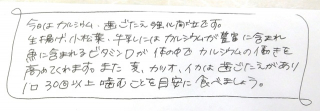 今日はカルシウム・歯ごたえ強化周間です。
生揚げ、小松菜、牛乳にはカルシウムが豊富に含まれ
魚に含まれるビタミンDが体の中でカルシウムの働きを
高めてくれます。また麦、カツオ、イカは歯ごたえがあり
1口30回以上噛むことを目安に食べましょう。